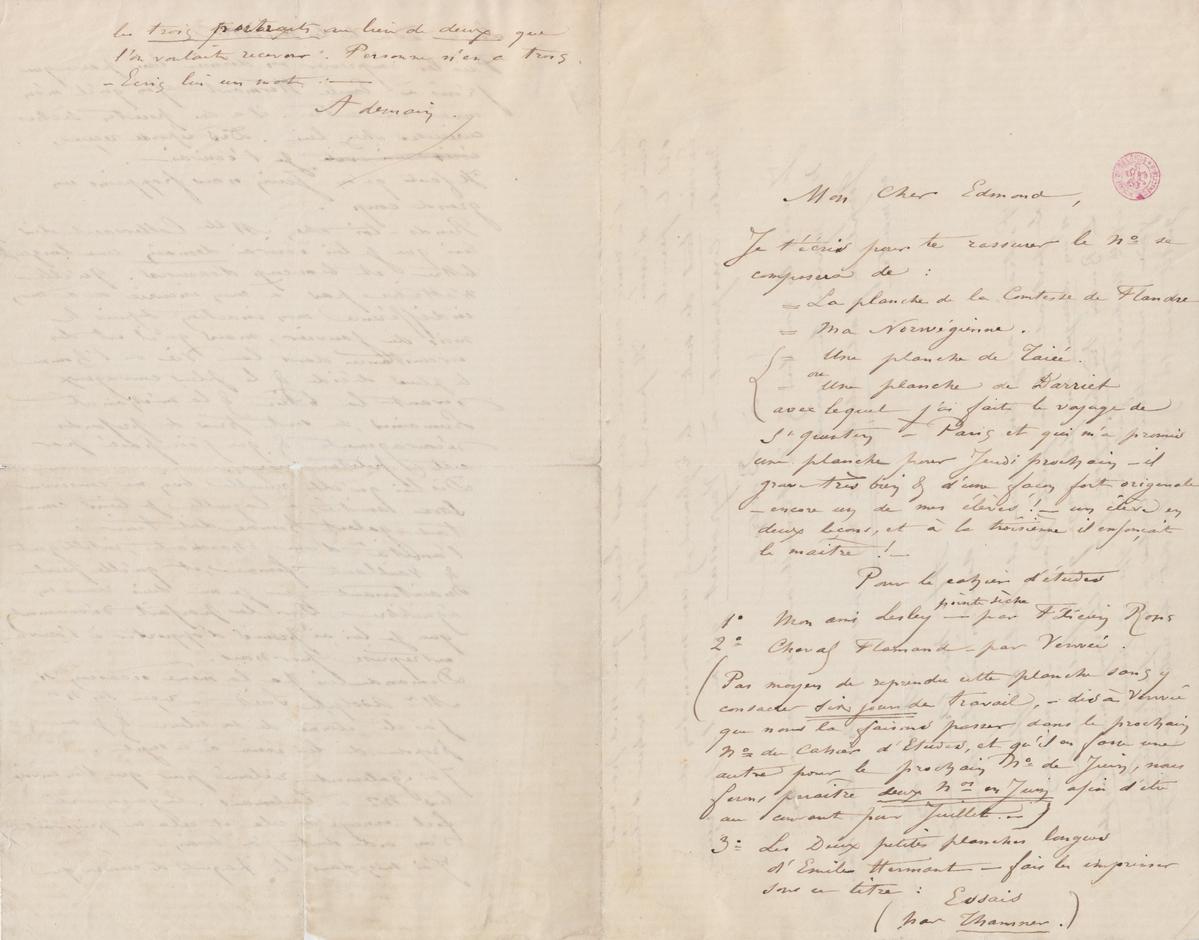 les trois portraits au lieu de deux que
l'on voulait recevoir. Personne n'en a trois.
– Ecris lui un mot :
A demain.
Mon cher Edmond,
Je t'écris pour te rassurer le Nº se
composera de :
= La planche de la Comtesse de Flandre
= Ma Norwégienne.
= Une planche de Taiée.
ou
– Une planche de Darriet
avec lequel j'ai fait le voyage de
St quentin – Paris et qui m'a promis
une planche pour Jeudi prochain – il
grave très bien & d'une façon fort originale
– encore un de mes élèves ! – un élève en
deux leçons, et à la troisième il enfonçait
le maître ! –
Pour le cahier d'études
pointe sèche
1º Mon ami Lesley – par Félicien Rops
2º Cheval Flamand – par Verwée.
(Pas moyen de reprendre cette planche sans y
consacrer six jours de travail, – dis à Verwée
que nous la faisons passer dans le prochain
Nº du Cahier d'Etudes, et qu'il en fasse une
autre pour le prochain Nº de Juin, nous
ferons paraître deux Nos en Juin afin d'être
au courant pour Juillet. –)
3º Les Deux petites planches longues
d'Emile Hermant – fais les imprimer
sous ce titre :
Essais
(par Thamner.)